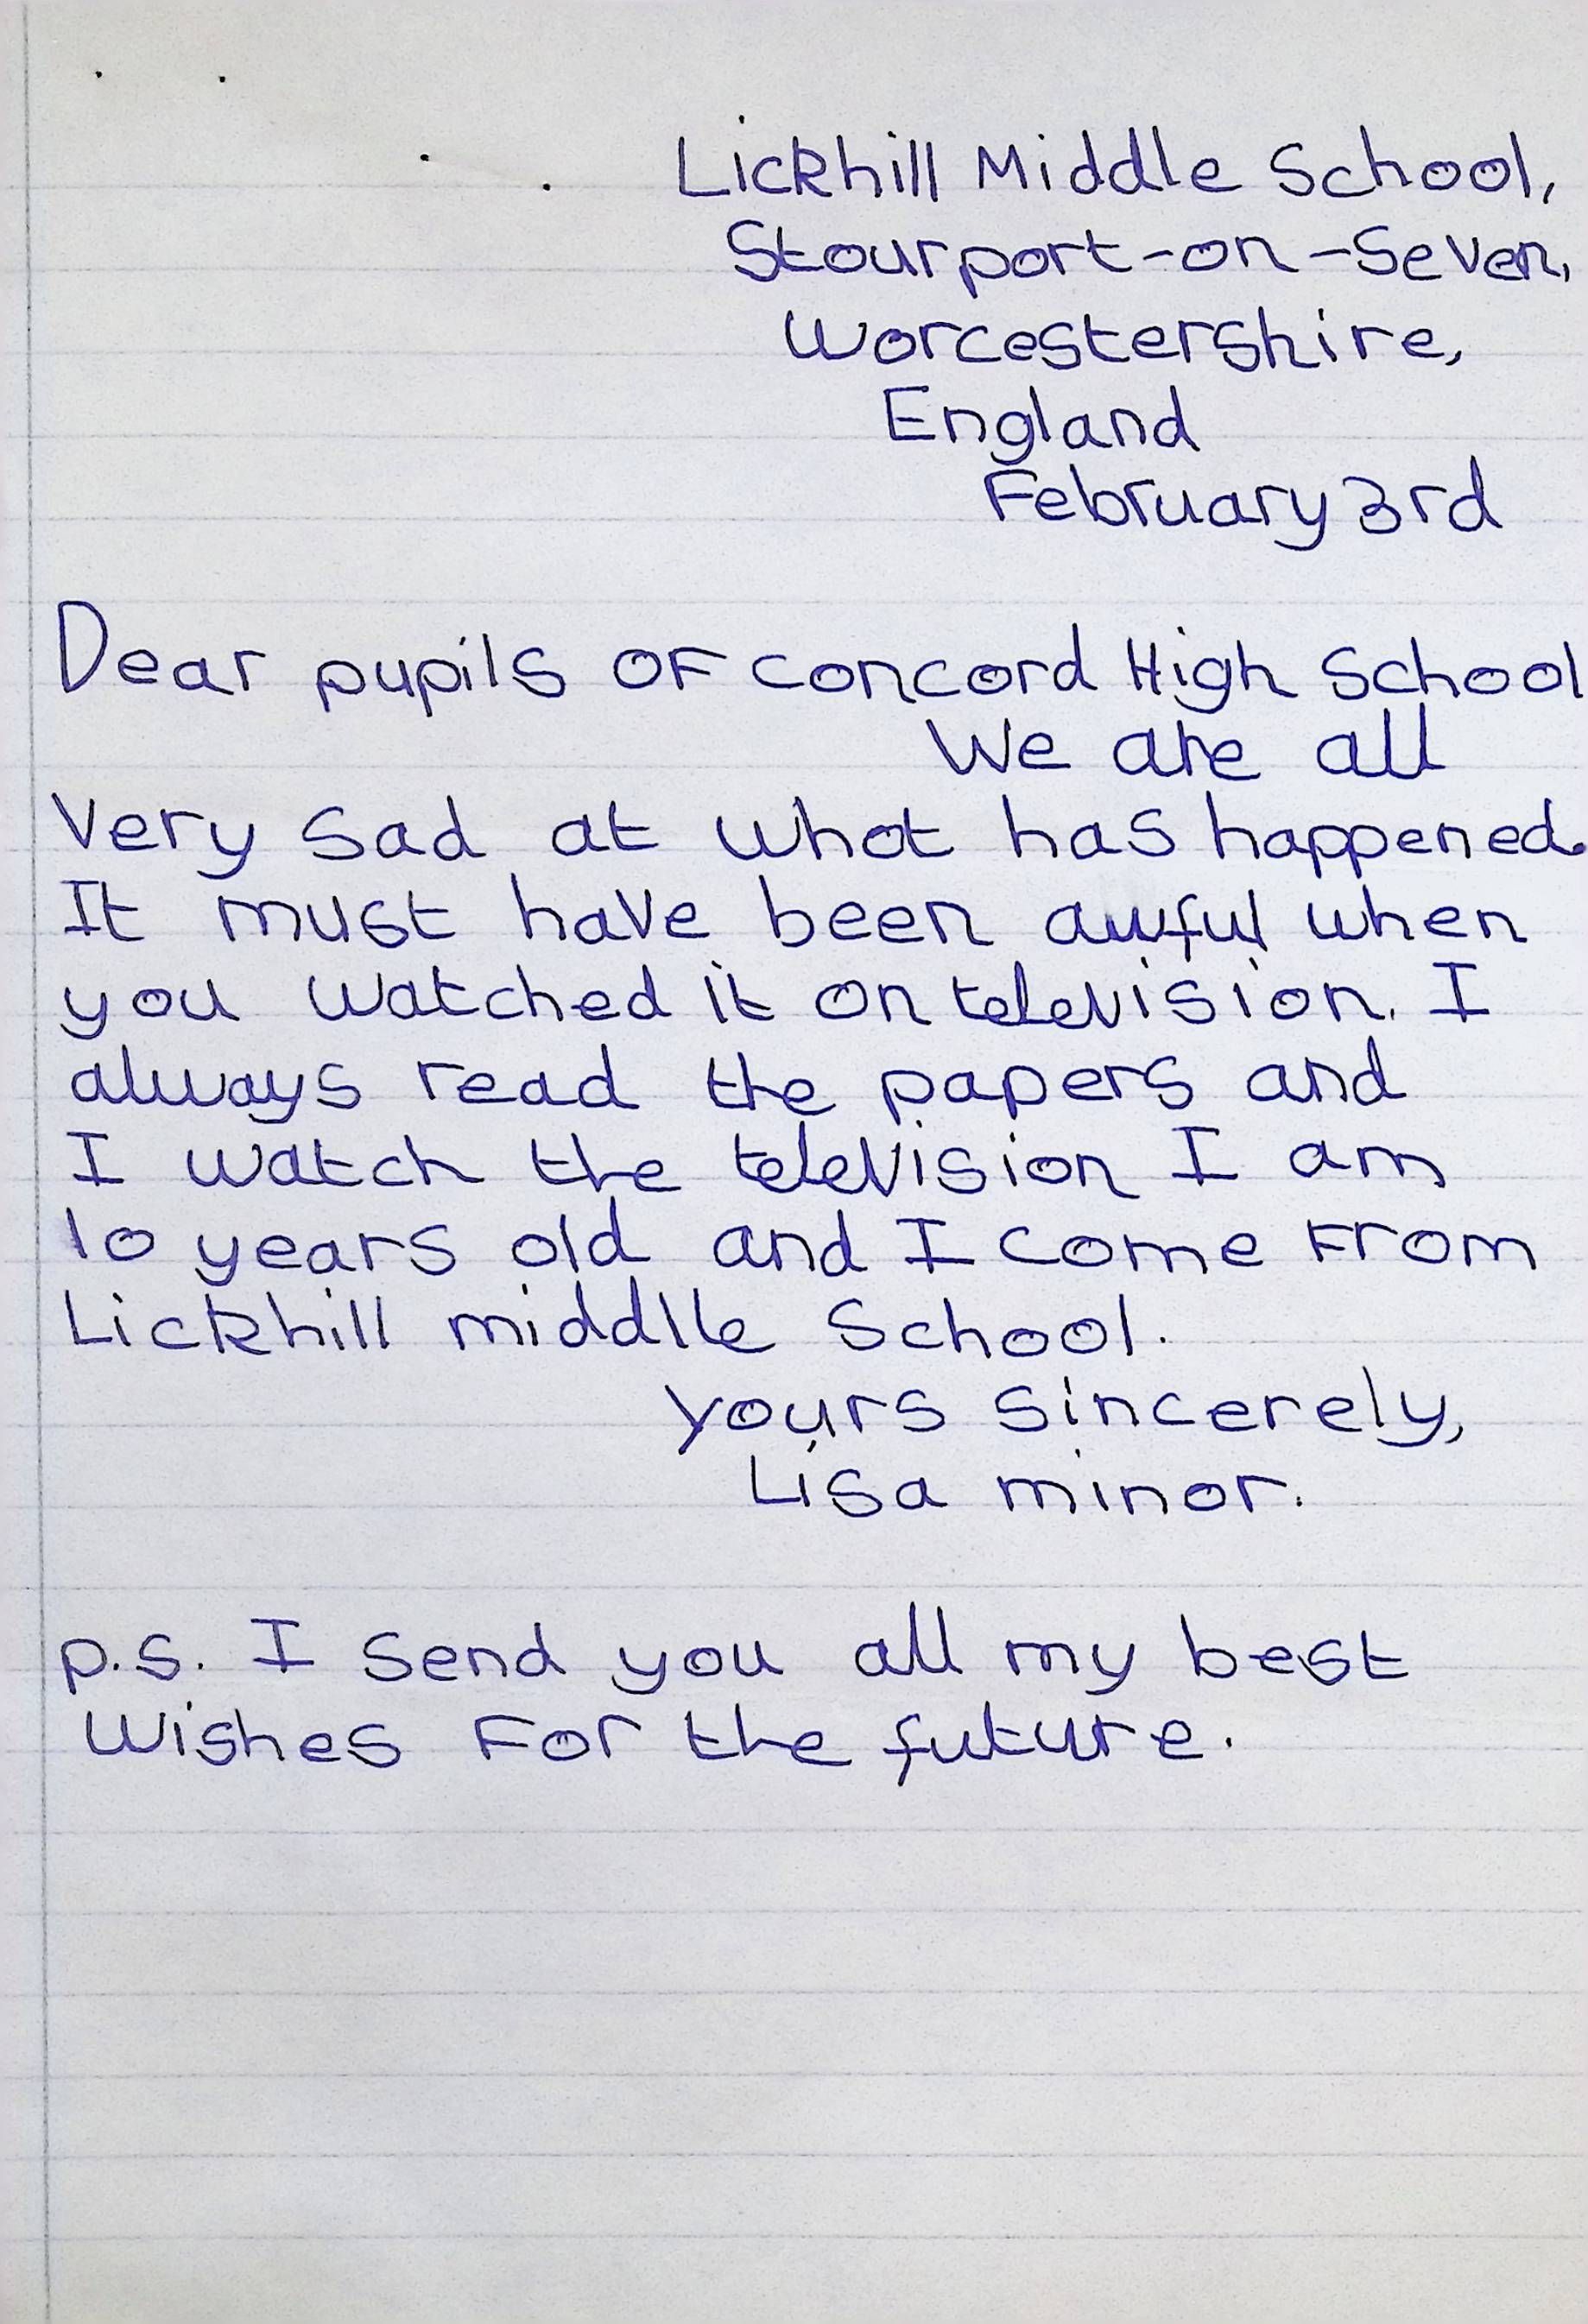 Lickhill Middle School,
Stourport-on-Seven,
Worcestershire,
England
February 3rd
Dear pupils OF concord High School
We are all
Very sad at what has happened.
It must have been awful when
you watched it on television. I
always read the papers and
I watch the television I am
10 years old and I come From
Lickhill middlle School.
yours sincerely,
Lisa minor.
p.s. I send you all my best
Wishes For the future.